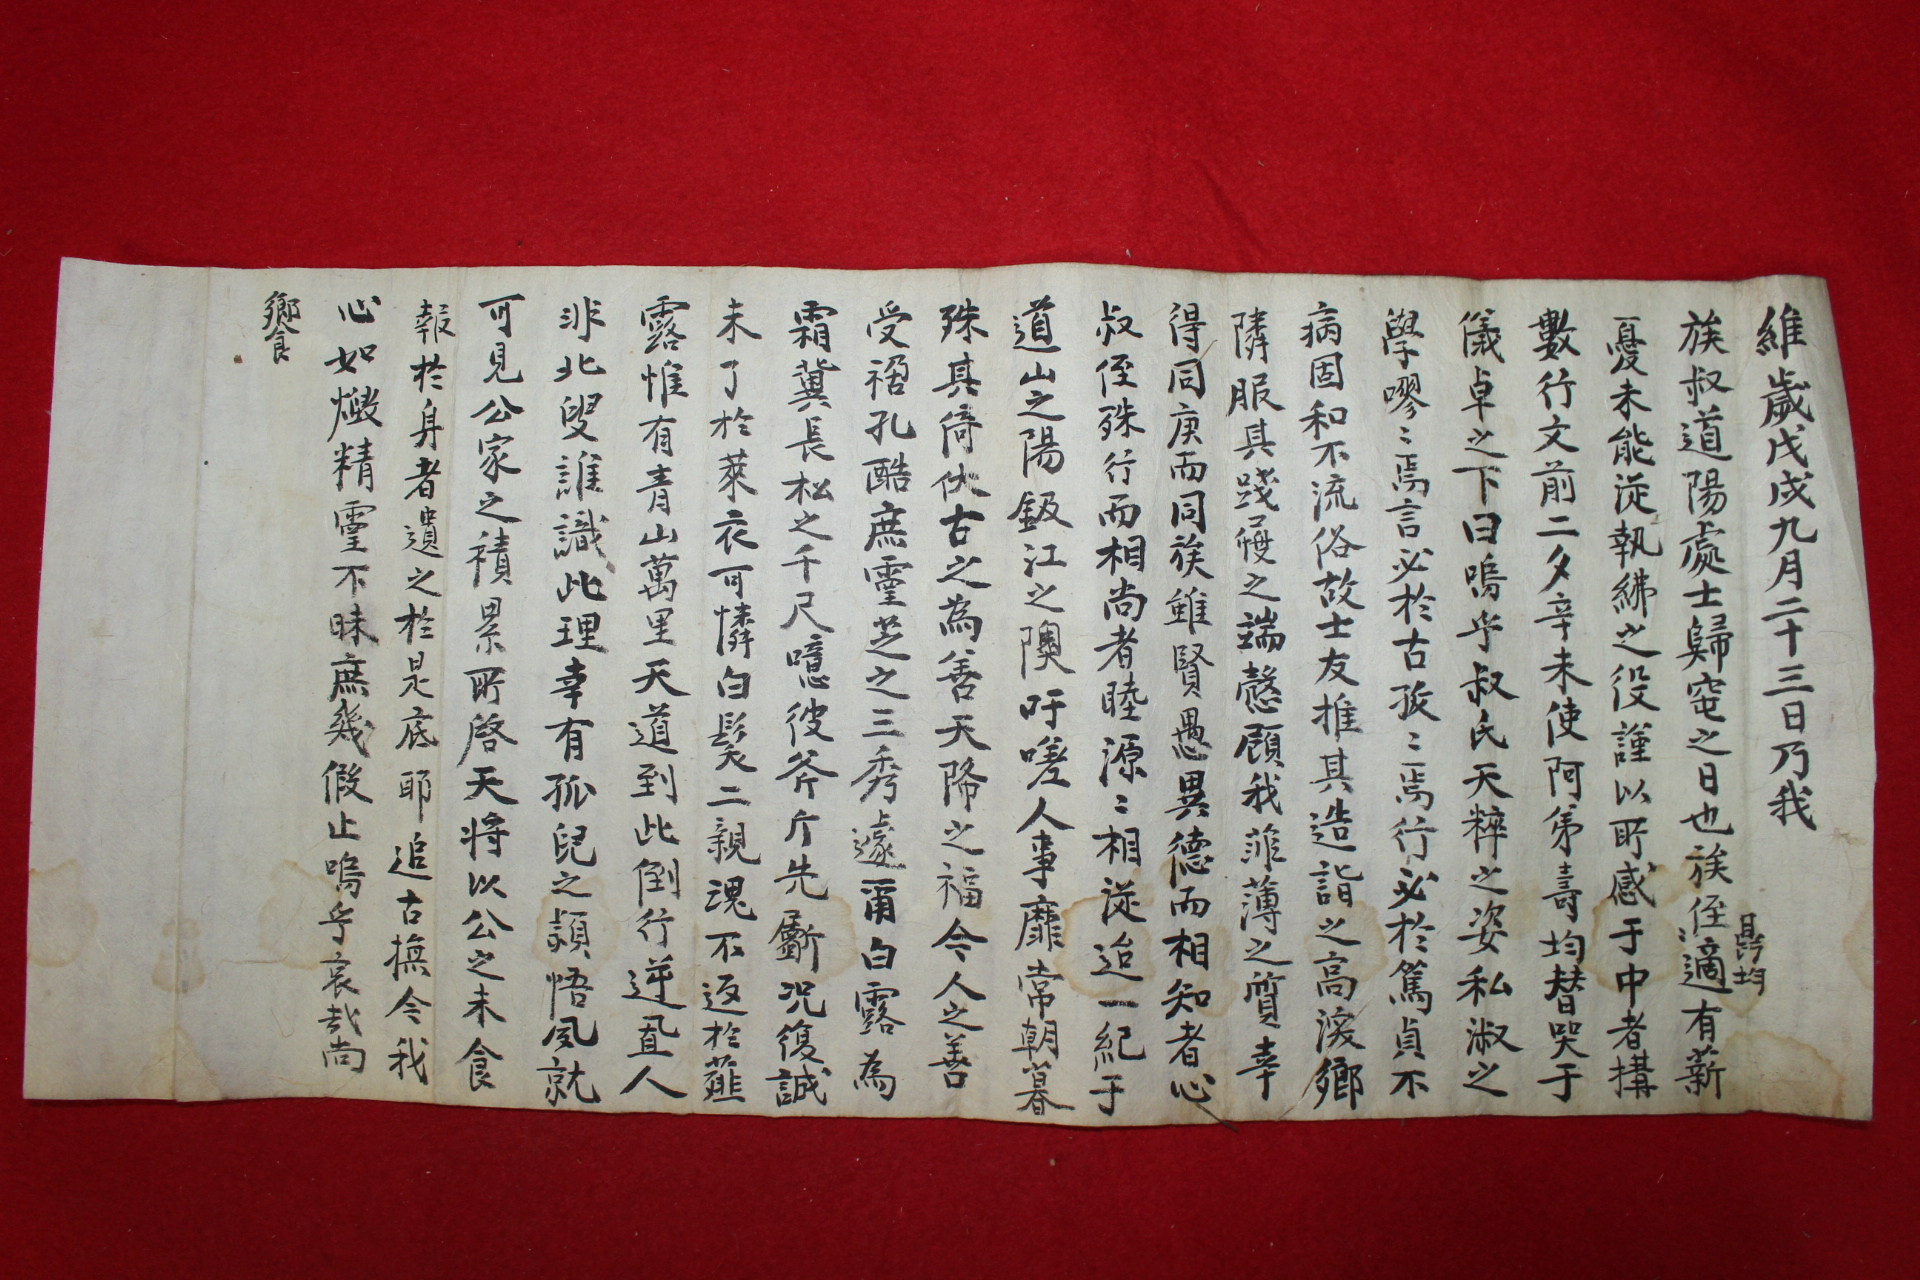 維歲戊戌九月二十三日乃我
族叔道陽處士歸窀之日也族侄昇均適有薪
憂未能從執紼之役謹以所感于中者搆
數行文前二夕辛未使阿弟壽均替哭于
儀卓之下曰嗚乎叔氏天粹之姿私淑之
學嘐〻焉言必於古孜〻焉行必於篤貞不
病固和不流俗故士友推其造詣之高深鄉
隣服其踐履之端慤顧我菲薄之質幸
得同庚而同族雖賢愚異德而相知者心
叔侄殊行而相尚者睦源〻相從迨一紀于
道山之陽鈒江之隩吁嗟人事靡常朝暮
殊其倚伏古之為善天降之福今人之善
受禍孔酷庶靈芝之三秀遽甭白露為
霜冀長松之千尺噫彼斧斤先斸況復誠
未了於萊衣可憐白髮二親魂不返於薤
露惟有青山萬里天道到此倒行逆且人
非北叟誰識此理幸有孤兒之穎悟夙就
可見公家之積累所啓天將以公之未食
報於身者遺之於是底耶追古撫今我
心如燬精靈不昧庶幾假止嗚乎哀哉尚
饗